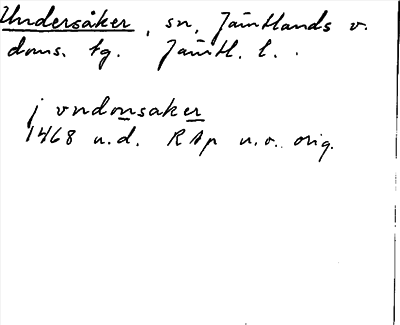 Undersåker, sn, Jämtlands v.
doms. tg. Jämtl. l.
j vndonsaker
1468 u.d. RAp n.o. orig.